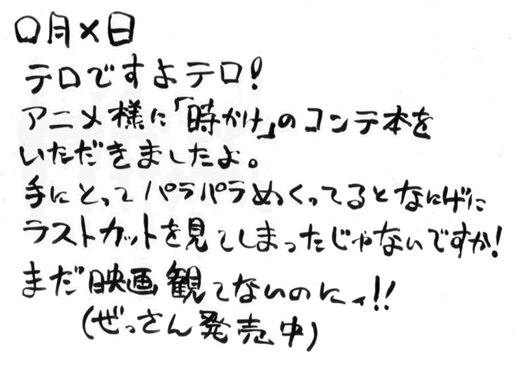 〇月×日
テロですよテロ!
アニメ様に「時かけ」のコンテ本を
いただきましたよ。
手にとってパラパラめくってるとなにげに
ラストカットを見てしまったじゃないですか!
まだ映画観てないのにィ!!
(ぜっさん発売中)